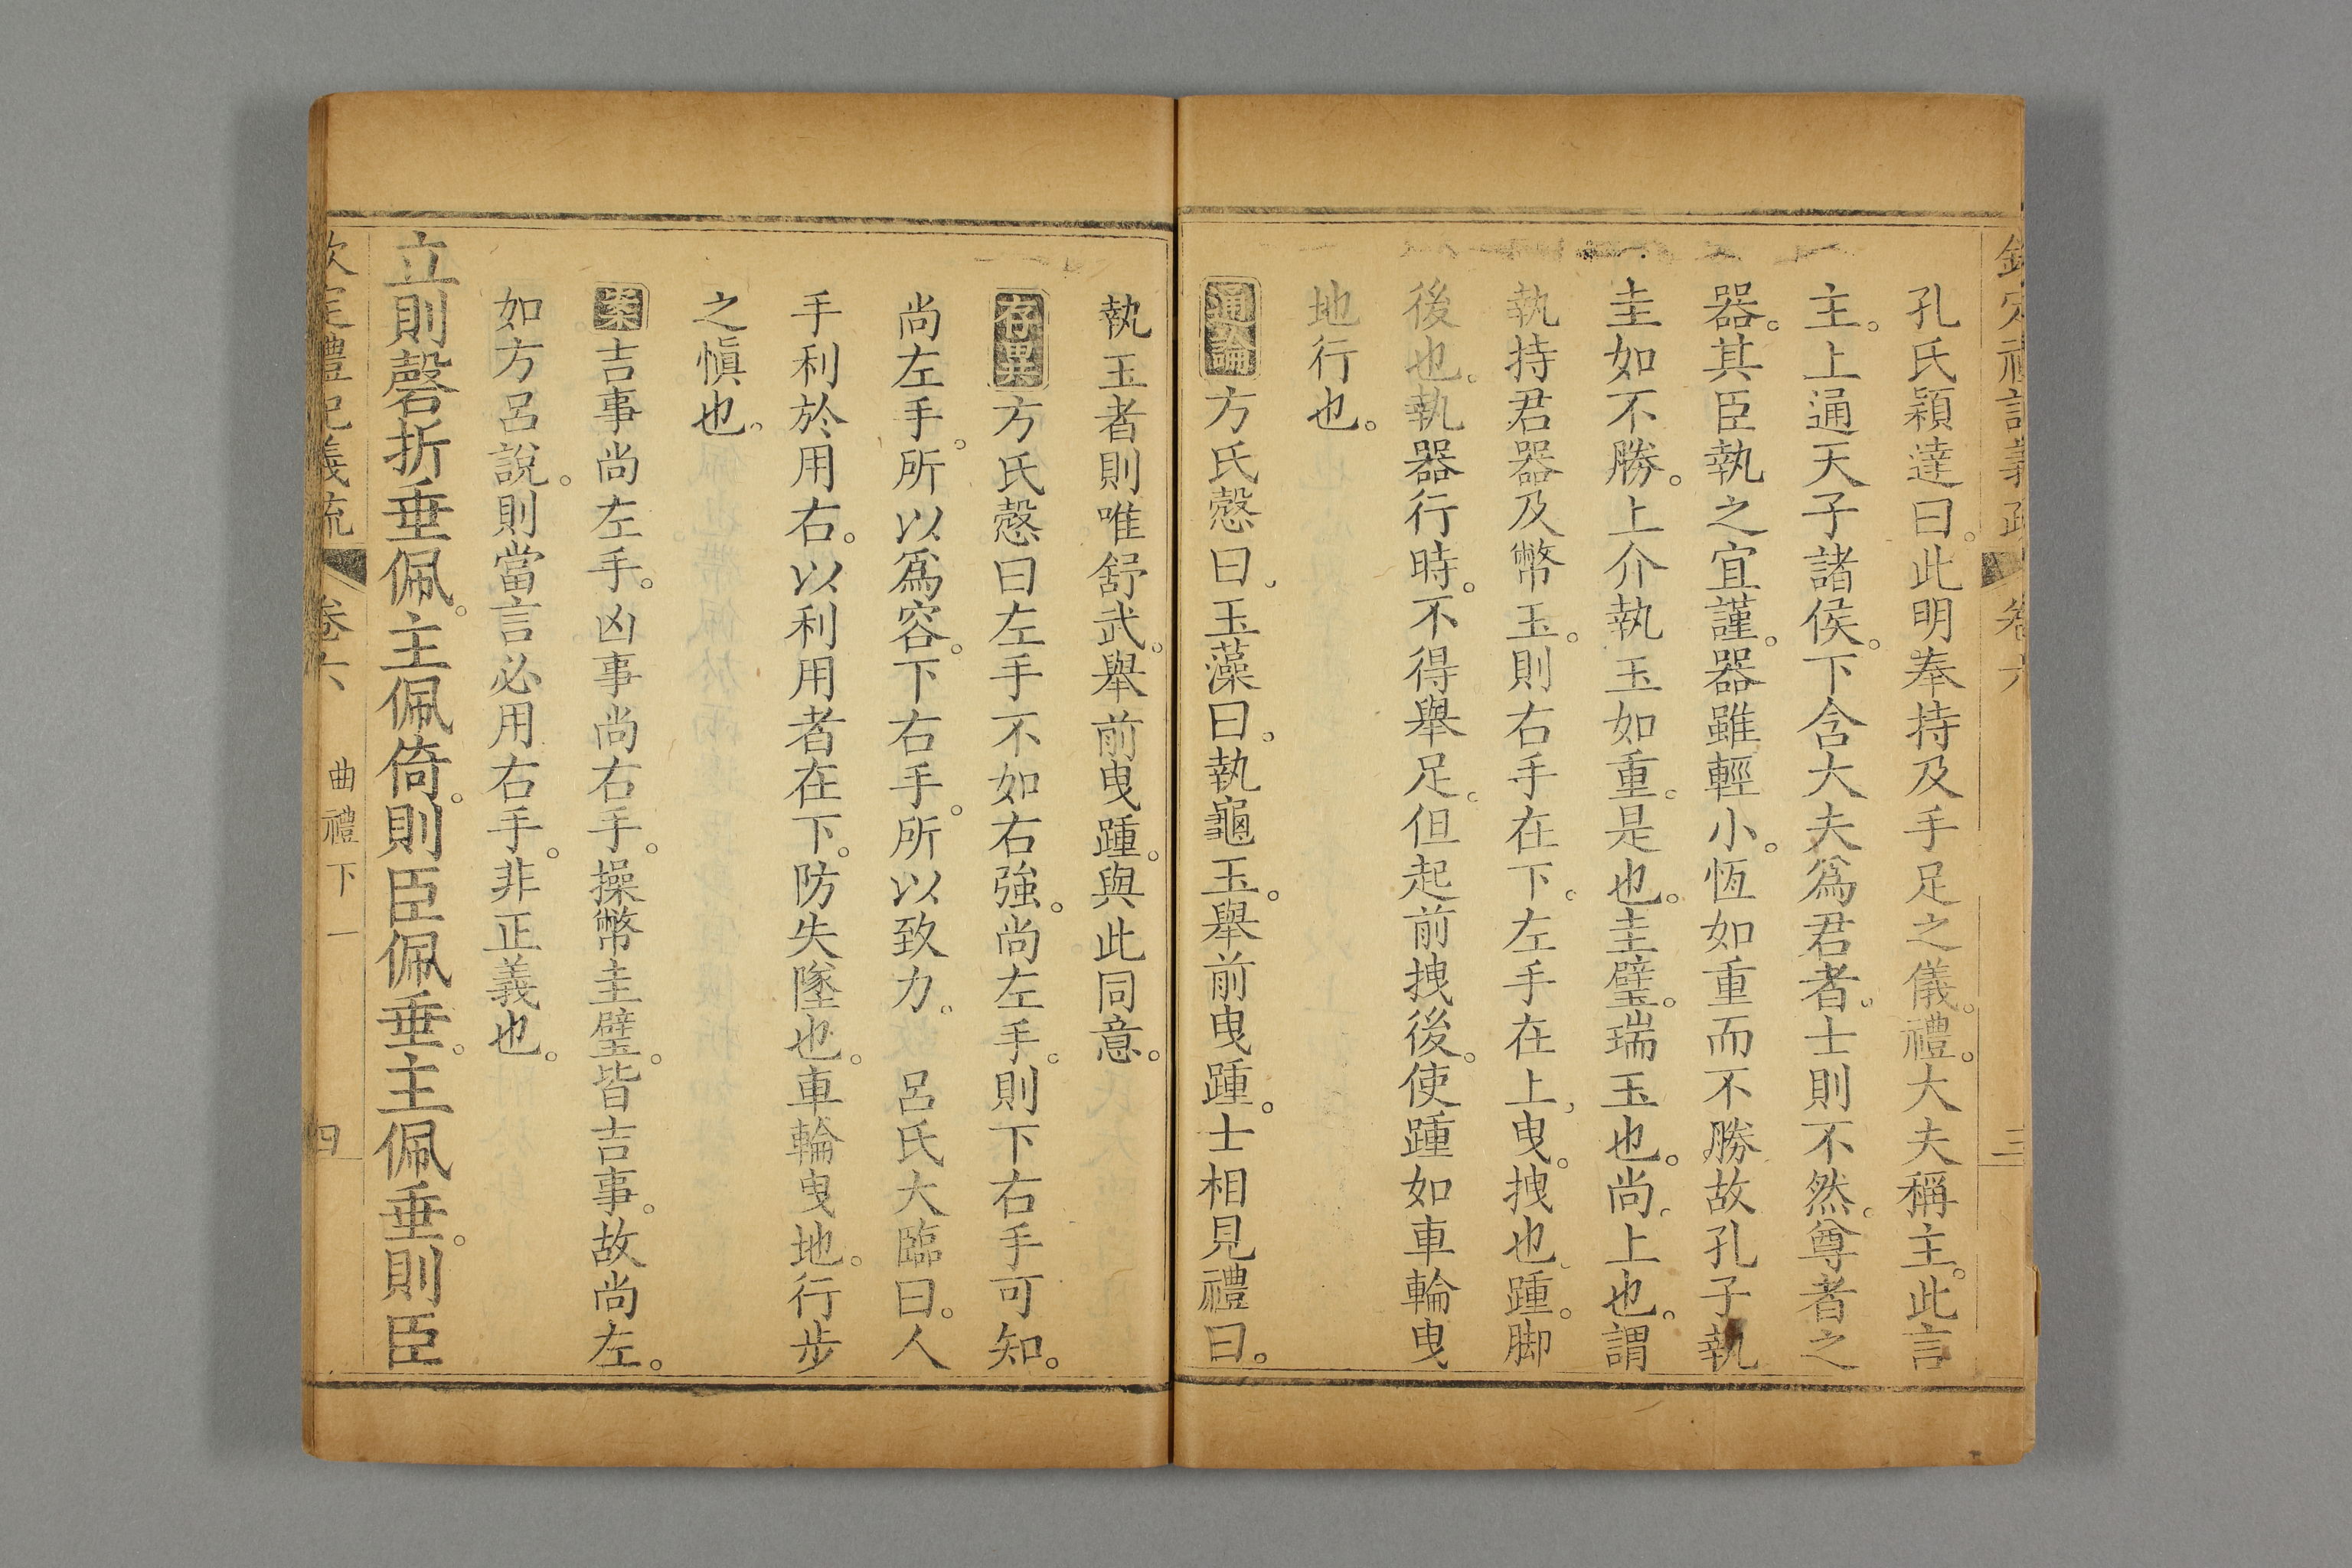 欽定禮記義疏 卷六 三
孔氏穎達曰。此明奉持及手足之儀。禮。大夫稱主。此言
主。上通天子諸侯。下含大夫爲君者。士則不然。尊者之
器。其臣執之宜謹。器雖輕小。恆如重而不勝故孔子執
圭如不勝。上介執玉如重。是也。圭璧。瑞玉也。尚。上也。謂
執持君器及幣玉。則右手在下。左手在上。曳。拽也。踵。脚
後也。執器行時。不得舉足。但起前拽後。使踵如車輪曳
地行也。
通論方氏慤曰。玉藻曰。執龜玉。舉前曳踵。士相見禮曰。
執玉者則唯舒武。舉前曳踵。與此同意。
存異方氏慤曰左手不如右強。尚左手。則下右手可知。
尚左手。所以爲容。下右手。所以致力。 呂氏大臨曰。人
手利於用右。以利用者在下。防失墜也。車輪曳地。行步
之愼也。
案吉事尚左手。凶事尚右手。操幣圭璧。皆吉事。故尚左。
如方呂說。則當言必用右手。非正義也。
立則磬折垂佩。主佩倚。則臣佩垂。主佩垂。則臣
欽定禮記義疏 卷六 曲禮下一 四